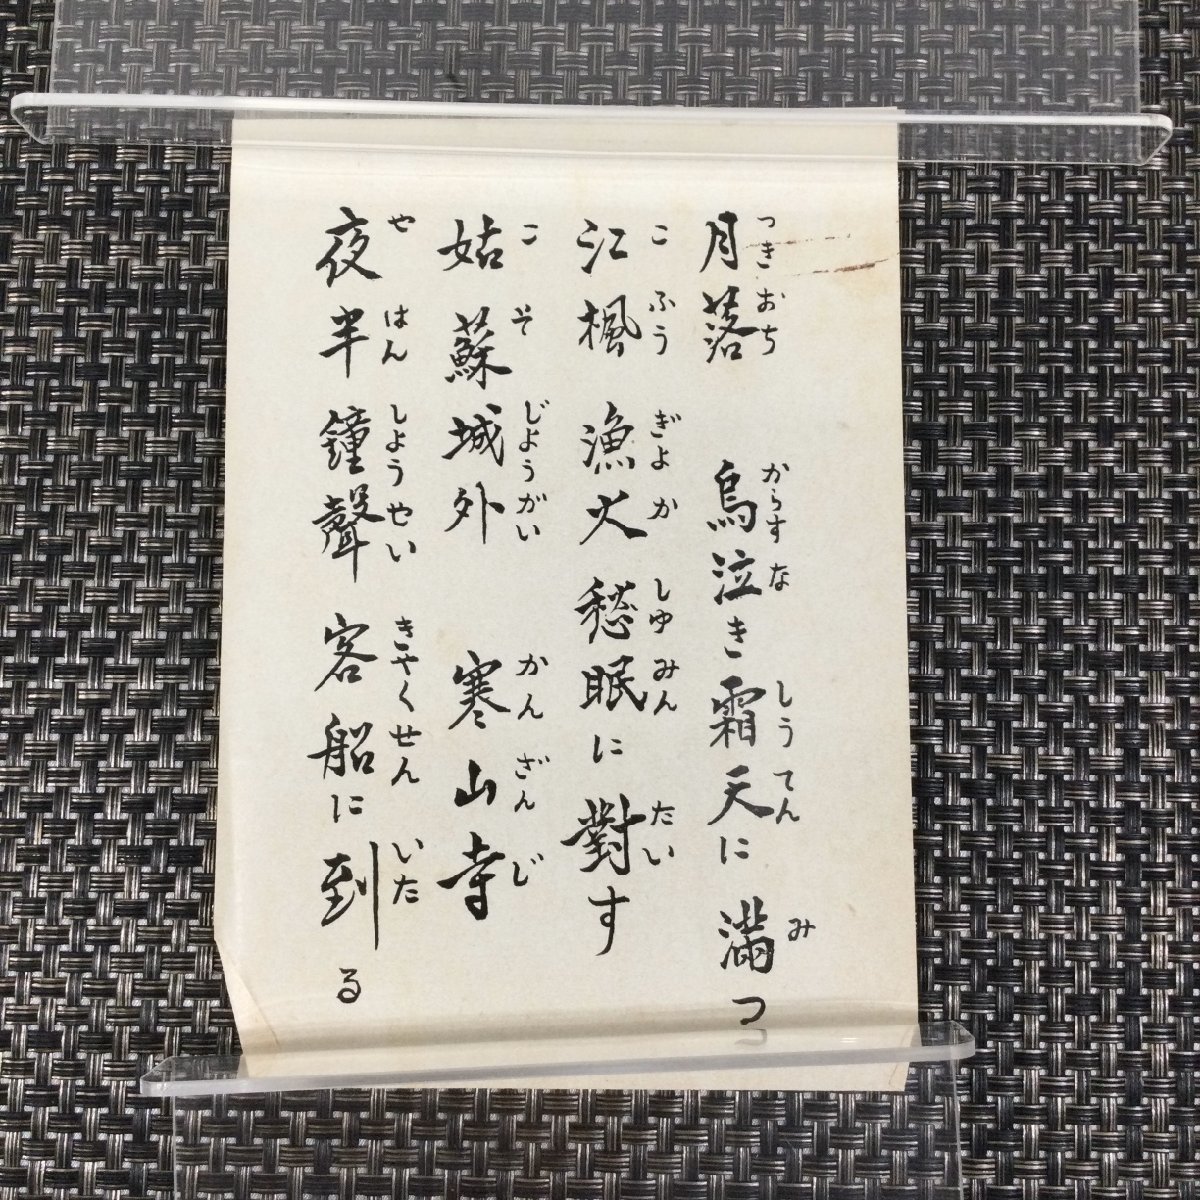 月落 烏泣き霜天に満つ
つきおち からすな しうてん み
江楓 漁火 愁眠に對す
こふう ぎよか しゆみん たい
姑蘇城外 寒山寺
こそじようがい かんざんじ
夜半鐘聲 客船に到る
やはんしようやい きやくせん いた